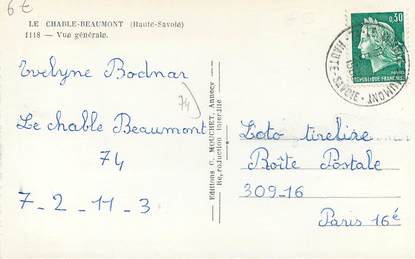 6€
LE CHABLE-BEAUMONT (Haute-Savoie)
1118 - Vue générale.
Evelyne Bodnar
74
Le chable Beaumont
74
7-2-11-3
Editions C. MOUCHET, Annecy
Reproduction interdite
0,30
POSTES
REPUBLIQUE FRANÇAISE
BEAUMONT
HAUTE-SAVOIE
Loto tirelire
Boîte Postale
309-16
Paris 16é